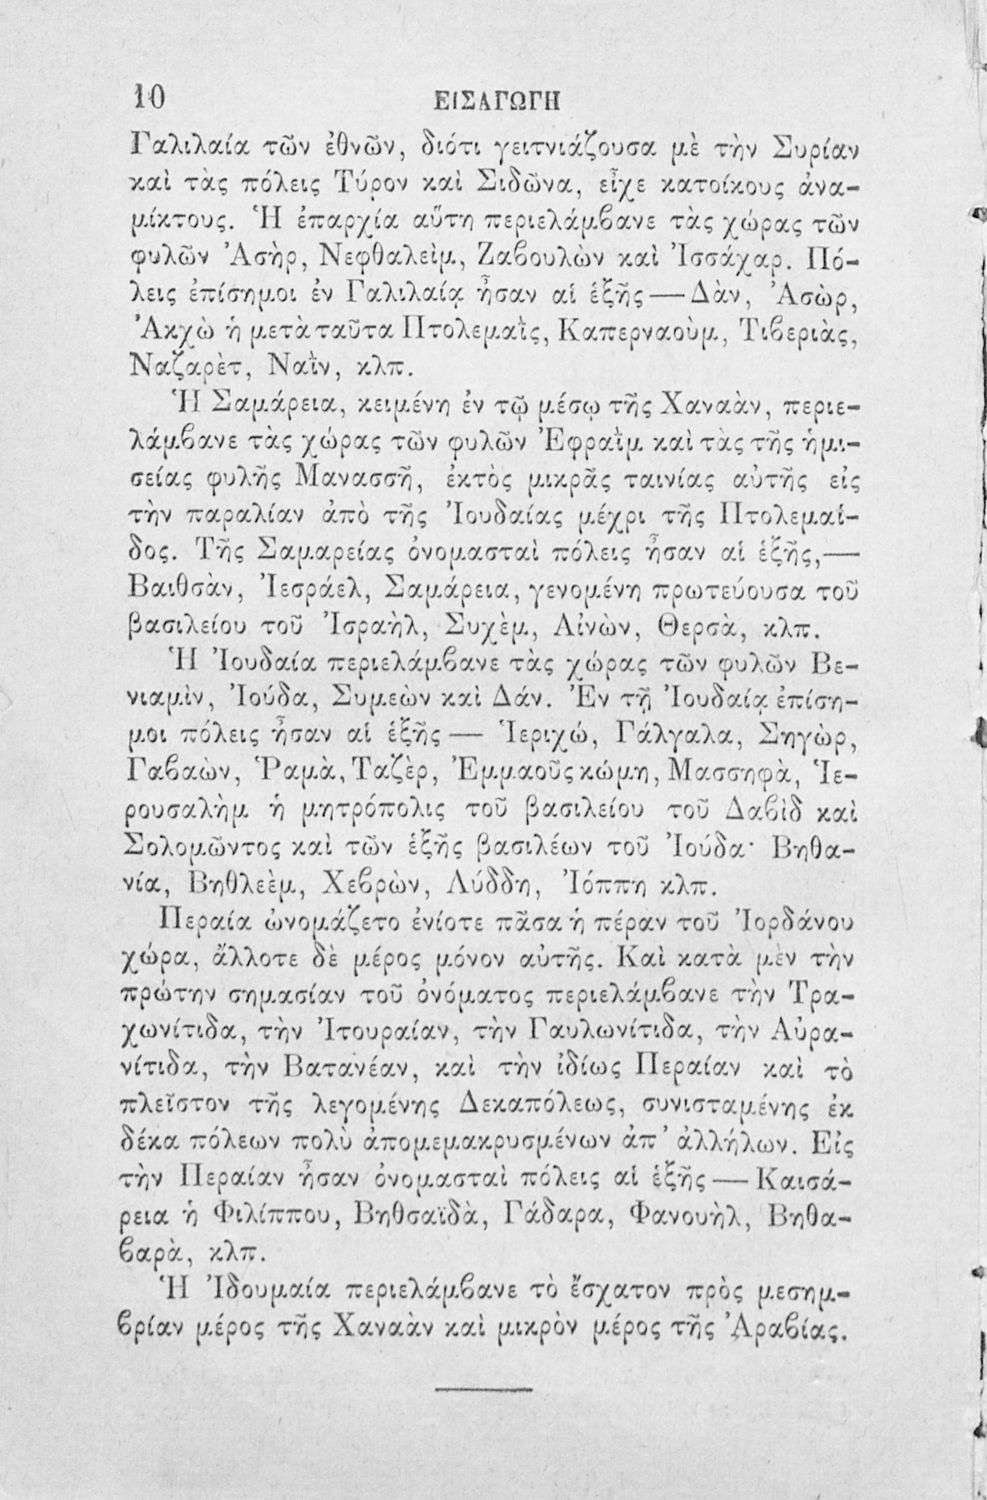 10 ΕΙΣΑΓΩΓΗ
Γαλιλαία τῶν ἐθνῶν, διότι γειτνιάζουσα μὲ τὴν Συρίαν
καὶ τὰς πόλεις Τύρον καὶ Σιδῶνα, εἶχε κατοίκους ἀνα-
μίκτους. Ἡ ἐπαρχία αὕτη περιελάμβανε τὰς χώρας τῶν
φυλῶν Ἀσὴρ, Νεφθαλεὶμ, Ζαβουλὼν καὶ Ἰσσάχαρ. Πό-
λεις ἐπίσημοι ἐν Γαλιλαίᾳ ἦσαν αἱ ἑξῆς — Δὰν, Ἀσὼρ,
Ἀκχὼ ἡ μετὰ ταῦτα Πτολεμαῒς, Καπερναοὺμ, Τιβεριὰς,
Ναζαρὲτ, Ναῒν, κλπ.
Ἡ Σαμάρεια, κειμένη ἐν τῷ μέσῳ τῆς Χαναὰν, περιε-
λάμβανε τὰς χώρας τῶν φυλῶν Ἐφραῒμ καὶ τὰς τῆς ἡμι-
σείας φυλῆς Μανασσῆ, ἐκτὸς μικρᾶς ταινίας αὐτῆς εἰς
τὴν παραλίαν ἀπὸ τῆς Ἰουδαίας μέχρι τῆς Πτολεμαΐ-
δος. Τῆς Σαμαρείας ὀνομασταὶ πόλεις ἦσαν αἱ ἑξῆς,—
Βαιθσὰν, Ἰεσράελ, Σαμάρεια, γενομένη πρωτεύουσα τοῦ
βασιλείου τοῦ Ἰσραὴλ, Συχὲμ, Αἰνὼν, Θερσὰ, κλπ.
Ἡ Ἰουδαία περιελάμβανε τὰς χώρας τῶν φυλῶν Βε-
νιαμὶν, Ἰούδα, Συμεὼν καὶ Δάν. Ἐν τῇ Ἰουδαίᾳ ἐπίση-
μοι πόλεις ἦσαν αἱ ἑξῆς — Ἱεριχώ, Γάλγαλα, Σηγὼρ,
Γαβαὼν, Ῥαμὰ, Ταζὲρ, Ἐμμαοῦς κώμη, Μασσηφὰ, Ἱε-
ρουσαλὴμ ἡ μητρόπολις τοῦ βασιλείου τοῦ Δαβὶδ καὶ
Σολομῶντος καὶ τῶν ἑξῆς βασιλέων τοῦ Ἰούδα· Βηθα-
νία, Βηθλεὲμ, Χεβρὼν, Λύδδη, Ἰόππη κλπ.
Περαία ὠνομάζετο ἐνίοτε πᾶσα ἡ πέραν τοῦ Ἰορδάνου
χώρα, ἄλλοτε δὲ μέρος μόνον αὐτῆς. Καὶ κατὰ μὲν τὴν
πρώτην σημασίαν τοῦ ὀνόματος περιελάμβανε τὴν Τρα-
χωνίτιδα, τὴν Ἰτουραίαν, τὴν Γαυλωνίτιδα, τὴν Αὐρα-
νίτιδα, τὴν Βατανέαν, καὶ τὴν ἰδίως Περαίαν καὶ τὸ
πλεῖστον τῆς λεγομένης Δεκαπόλεως, συνισταμένης ἐκ
δέκα πόλεων πολὺ ἀπομεμακρυσμένων ἀπ’ ἀλλήλων. Εἰς
τὴν Περαίαν ἦσαν ὀνομασταὶ πόλεις αἱ ἑξῆς — Καισά-
ρεια ἡ Φιλίππου, Βηθσαϊδὰ, Γάδαρα, Φανουὴλ, Βηθα-
βαρὰ, κλπ.
Ἡ Ἰδουμαία περιελάμβανε τὸ ἔσχατον πρὸς μεσημ-
βρίαν μέρος τῆς Χαναὰν καὶ μικρὸν μέρος τῆς Ἀραβίας.